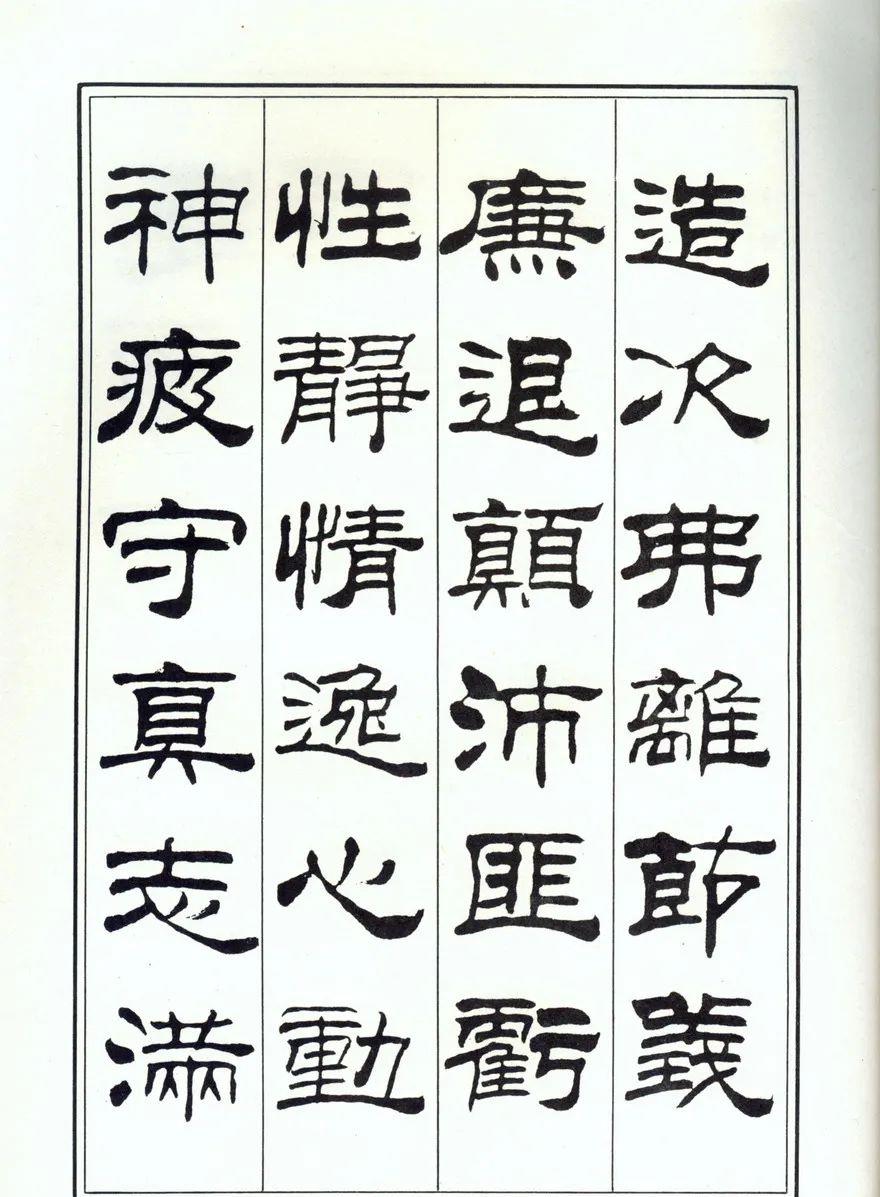 造次弗離節義
廉退顛沛匪虧
性靜情逸心動
神疲守真志滿